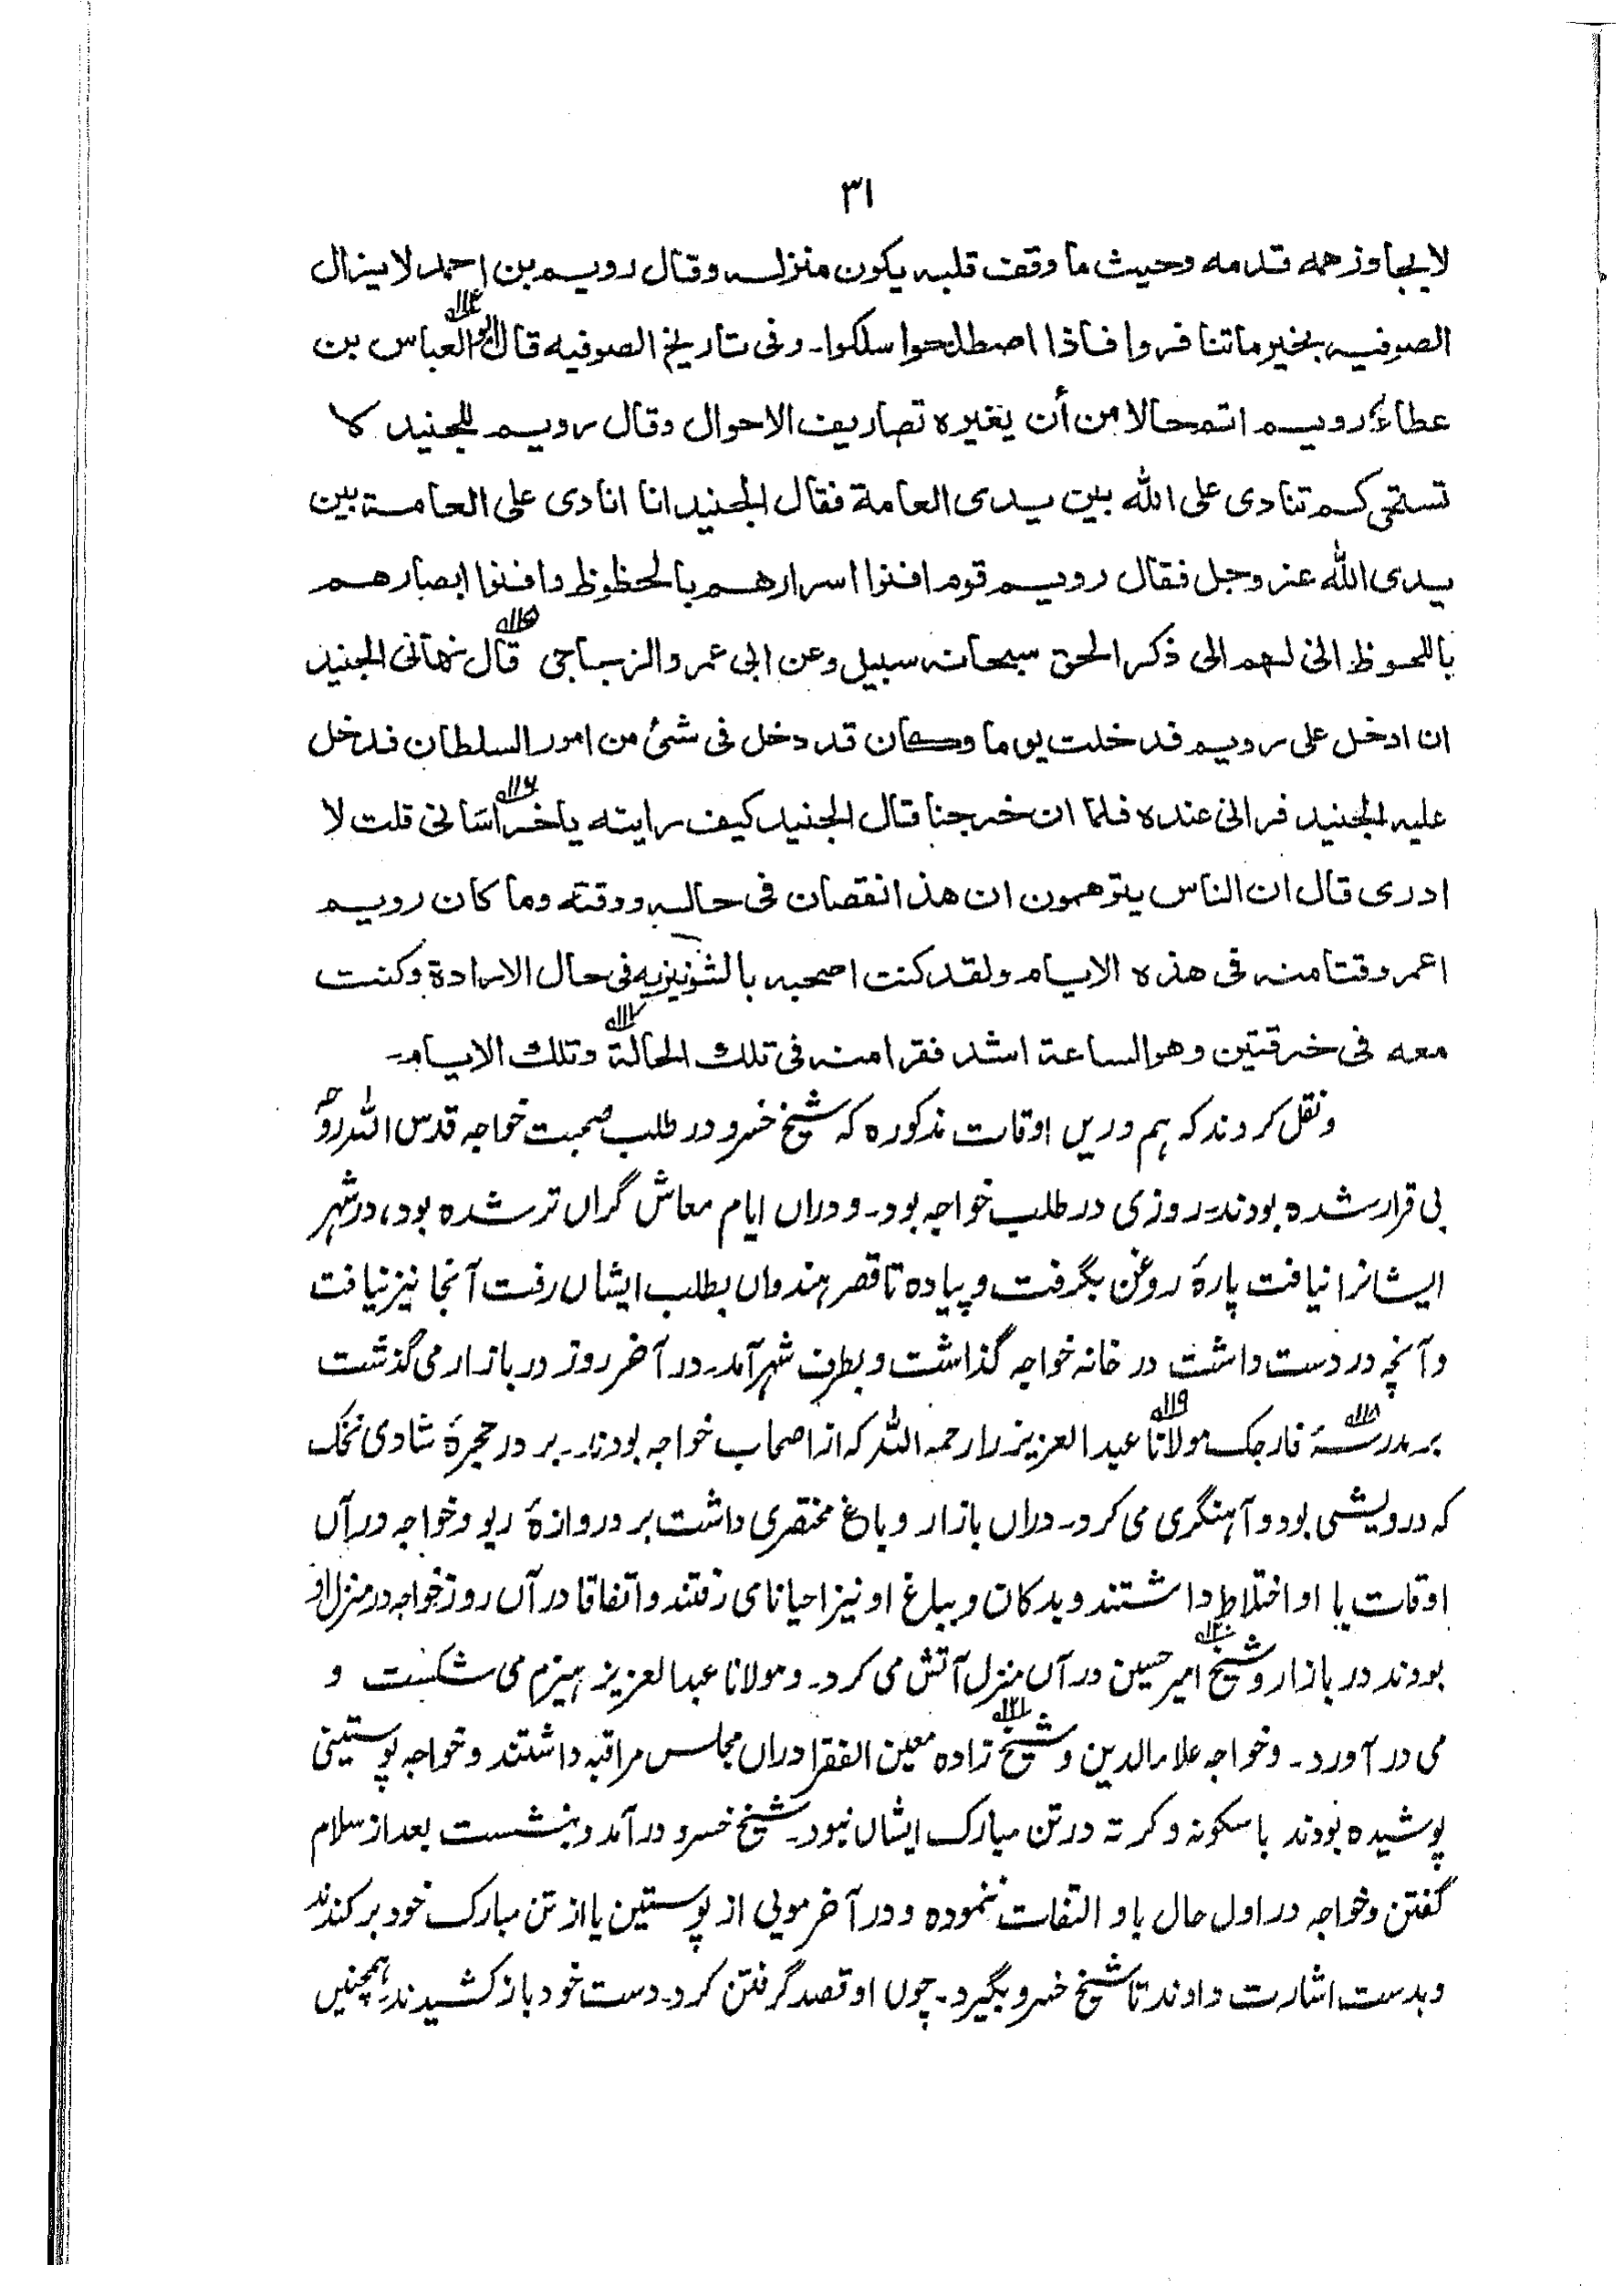 ۳۱
لا یجاوز همه قدمه وحیث ما وقف قلبه یکون منزله وقال رویم بن احمد لا یزال
الصوفیه بخیر ما تنافروا فاذا اصطلحوا سلکوا۔ وفی تاریخ الصوفیه قال ابو العباس بن
عطاء رویم اتم حالا من أن یغیره تصاریف الاحوال وقال رویم للجنید کا
تستحی کم تنادی علی الله بین یدی العامة فقال الجنید انا انادی علی العامة بین
یدی الله عز وجل فقال رویم قوم افنوا اسرارهم بالحظوظ وافنوا ابصارهم
باللحوظ انی لهم الی ذکر الحق سبحانه سبیل وعن ابی عمر و الزجاجی قال نهانی الجنید
ان ادخل علی رویم فدخلت یوما وکان قد دخل فی شئ من امور السلطان فدخل
علیه الجنید فرانی عنده فلما ان خرجنا قال الجنید کیف رایته یا خراسانی قلت لا
ادری قال ان الناس یتوهمون ان هذا نقصان فی حاله ووقته وما کان رویم
اعمر وقتا منه فی هذه الایام ولقد کنت اصحبه بالشونیزیه فی حال الارادة وکنت
معه فی خرقتین وهو الساعة اشد فقرا منه فی تلک الحالة وتلک الایام۔
ونقل کردند که هم دریں اوقات مذکوره که شیخ خسرو در طلب صحبت خواجه قدس الله روحه
بی قرار شده بودند۔ روزی در طلب خواجه بود۔ و دراں ایام معاش گراں تر شده بود، در شهر
ایشانرا نیافت پارۀ روغن بگرفت و پیاده تا قصر هندواں بطلب ایشاں رفت آنجا نیز نیافت
و آنچه در دست داشت در خانه خواجه گذاشت و بطرف شهر آمد۔ در آخر روز در بازار می گذشت
بر مدرسۀ فارجک مولانا عبد العزیز را رحمه الله که از اصحاب خواجه بودند۔ بر در حجرۀ شادی نخک
که درویشی بود و آهنگری می کرد۔ دراں بازار و باغ مختصری داشت بر دروازۀ ریو و خواجه در آں
اوقات با او اختلاط داشتند و بدکان و بباغ او نیز احیانا می رفتند و اتفاقا در آں روز خواجه در منزل او
بودند در بازار و شیخ امیر حسین در آں منزل آتش می کرد۔ و مولانا عبد العزیز هیزم می شکست و
می در آورد۔ و خواجه علاء الدین و شیخ زاده معین الفقرا دراں مجلس مراقبه داشتند و خواجه پوستینی
پوشیده بودند باسکونه و کرته در تن مبارک ایشاں نبود۔ شیخ خسرو در آمد و بنشست بعد از سلام
گفتن و خواجه در اول حال باو التفات ننموده و در آخر مویی از پوستین یا از تن مبارک خود برکندند
و بدست اشارت دادند تا شیخ خسرو بگیرد۔ چوں او قصد گرفتن کرد۔ دست خود باز کشیدند۔ همچنیں